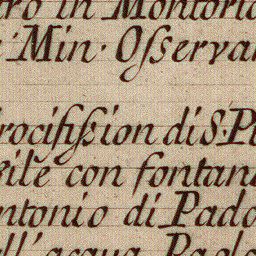 tro in Montorio
Min. Osserva
rocifission di S. P
ile con fontan
ntonio di Pado
ll'acqua Paol